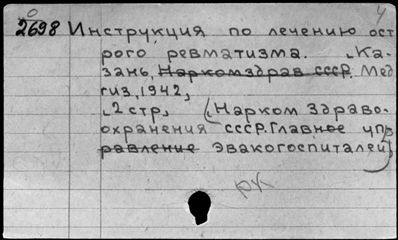 4
2698 Инструкция по лечению ост
рого ревматизма. Ка-
зань, Наркомздрав СССР. Мед
гиз, 1942,
2 стр, (Нарком Здраво-
охранения СССР. Главное упр
равление эвакогоспиталей)
рк